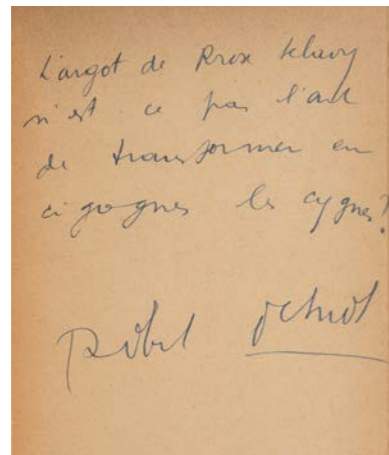 L'argot de Rrose Sélavy
n'est ce pas l'art
de transformer en
cigognes les cygnes?
Robert Desnos